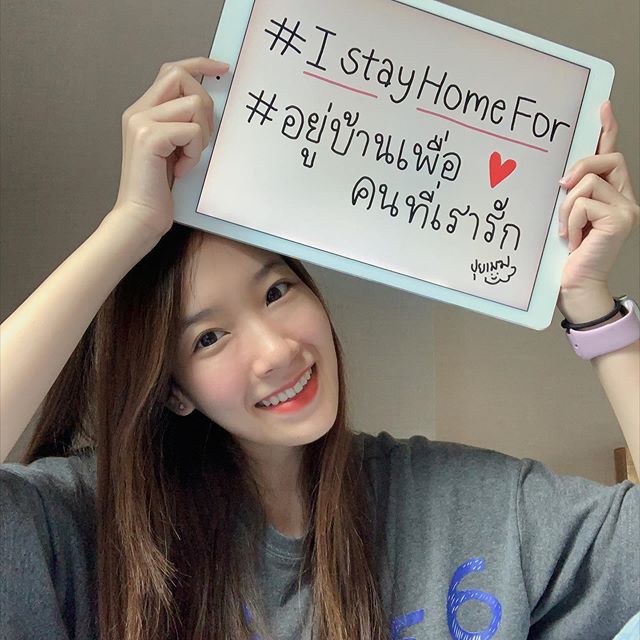 #IstayHomeFor
#อยู่บ้านเพื่อ
คนที่เรารัก
ปุยเมฆ
6